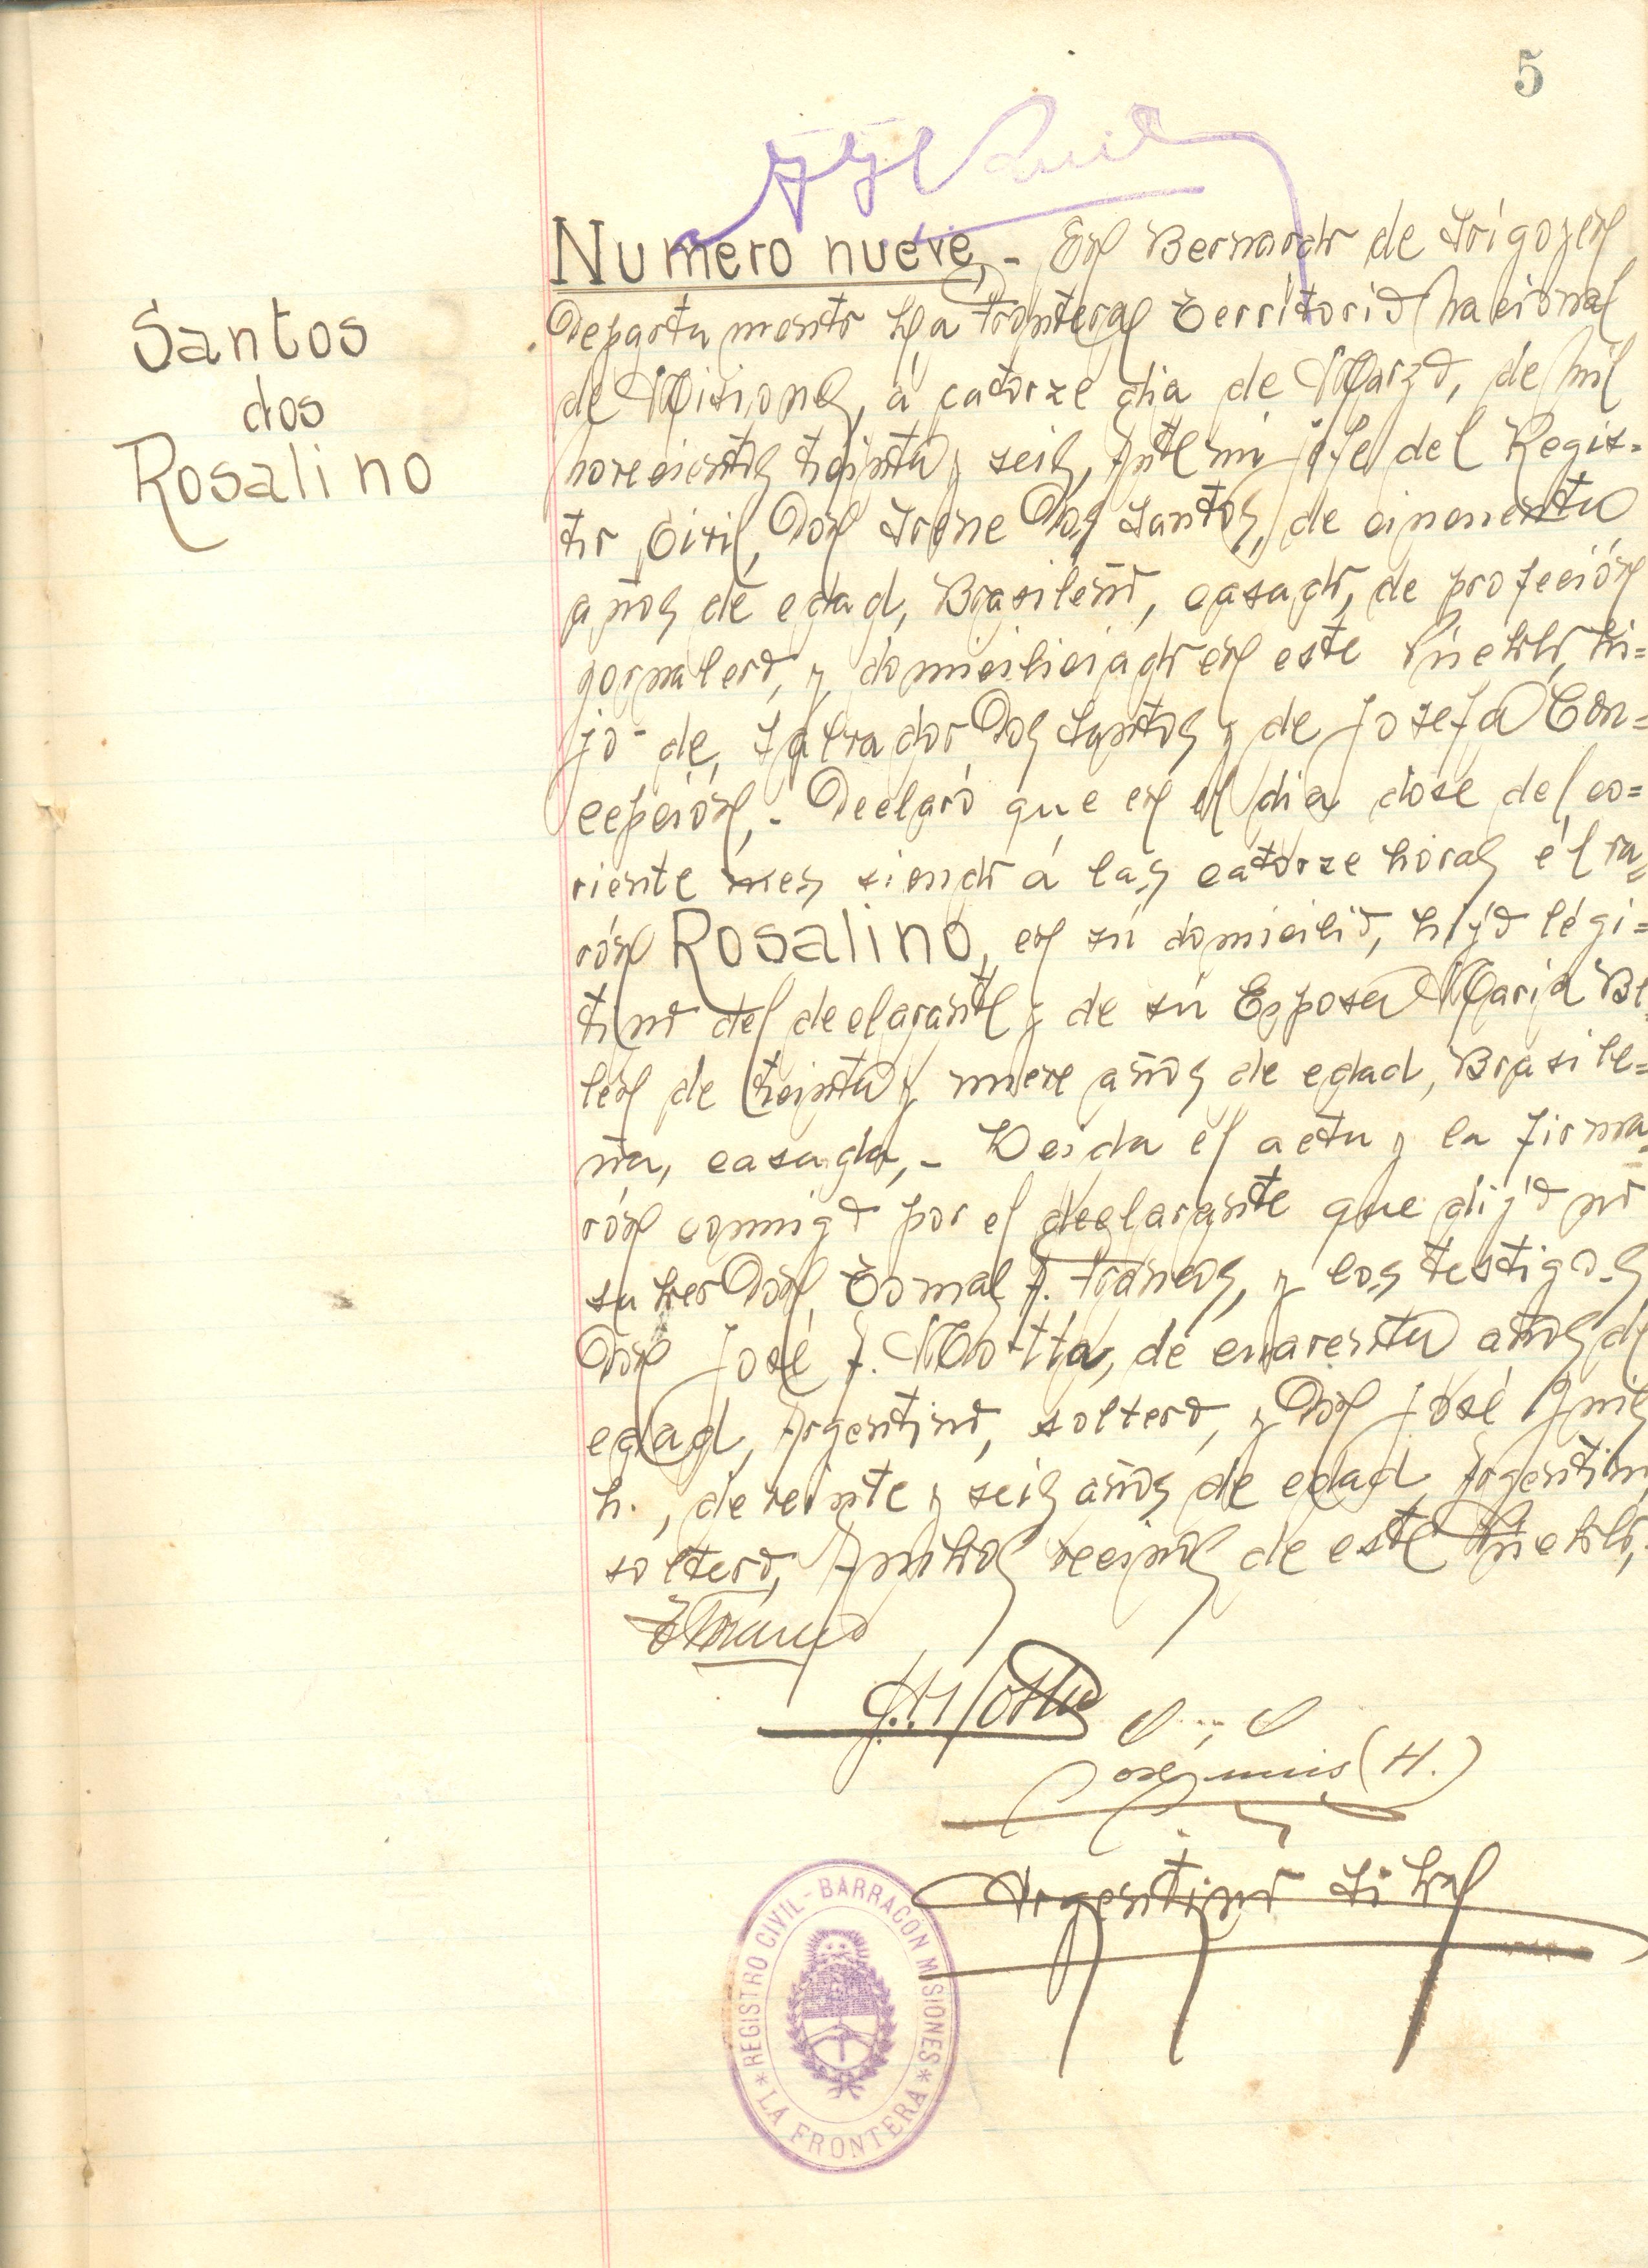 5
Santos
dos
Rosalino
Numero nueve,- En Bernardo de Irigoyen
Departamento La Frontera, Territorio Nacional
de Misiones, á catorze dia de Marzo, de mil
novecientos treinta y seis, Ante mi jefe del Regis=
tro Civil, Don Irene Dos Santos, de cincuenta
años de edad, Brasileño, casado, de profeción
jornalero, y domiciliciado en este Pueblo, hi=
jo de, Salvador Dos Santos y de Josefa Con=
cepción,- Declaró que en el dia dose del co=
riente mes siendo á las catorze horas él va=
rón Rosalino, en sú domicilio, hijo légi=
timo del declarante y de sú Esposa Maria Be=
lén de treinta y nueve años de edad, Brasile=
ña, casada,- Leida el acta y la firma=
rón conmigo por el declarante que dijo no
saber Don, Tomas F. Francos, y los testigos
Don José J. Motta, de cuarenta años de
edad, Argentino, soltero, y Don José Gnis
h., de veinte y seis años de edad, Argentino
soltero, Ambos vecinos de este Pueblo,-
J. Motta
José (H.)
Argentino
* REGISTRO CIVIL - BARRACON MISIONES * LA FRONTERA